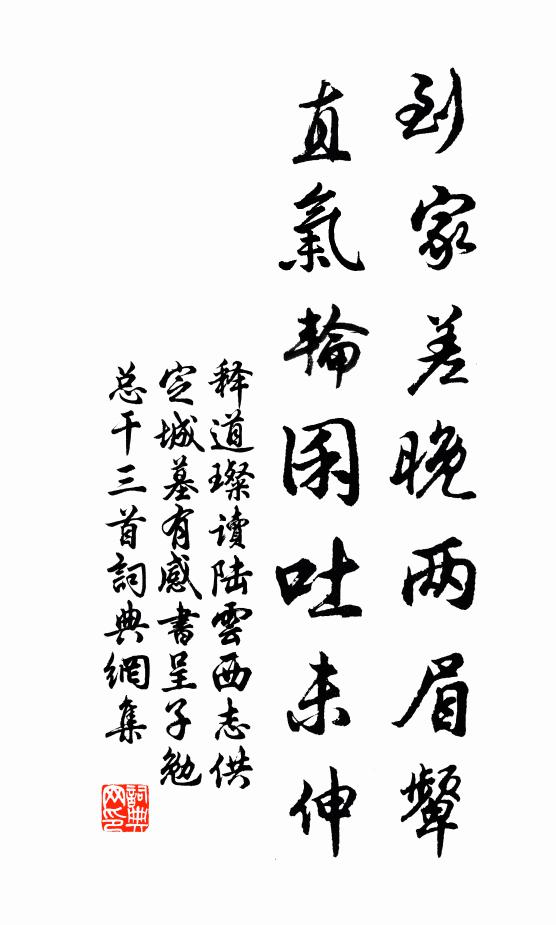 到家差晚两眉顰
直氣輪囷吐未伸
释道璨讀陸雲西志供
定城墓有感書呈子勉
总干三首詞典網集
詞典网印